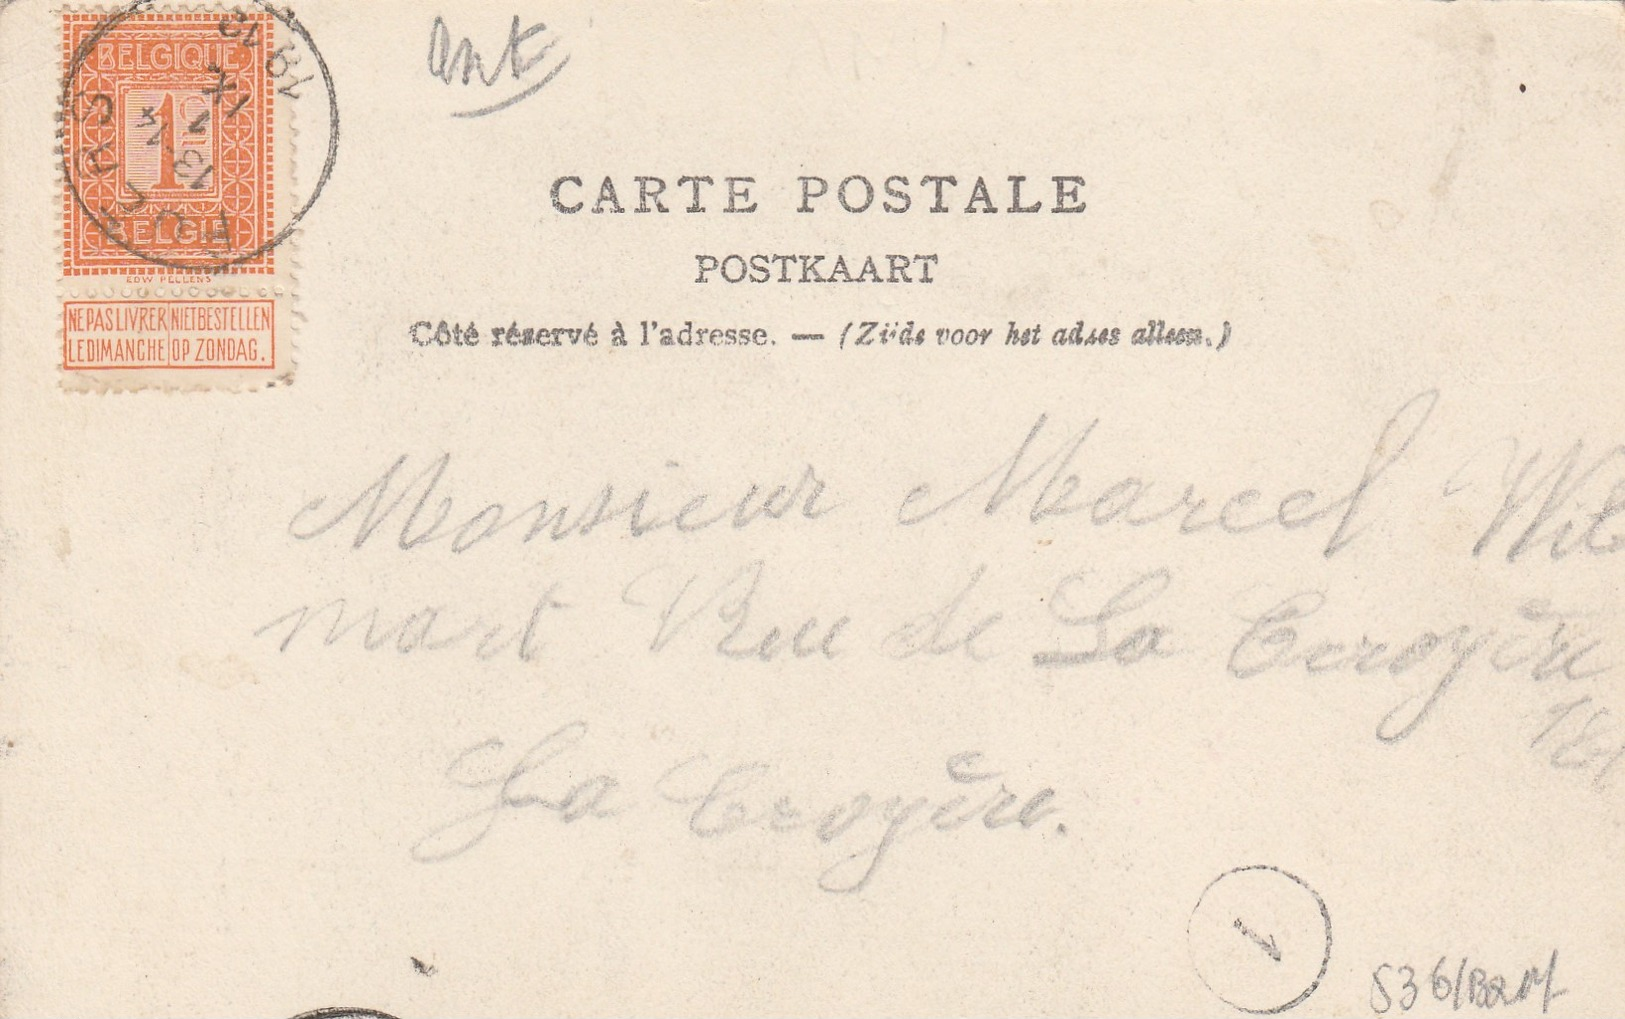 BELGIQUE
1c
BELGIË
EDW PELLENS
NE PAS LIVRER NIET BESTELLEN
LE DIMANCHE OP ZONDAG.
13-14
1
IX
1912
CARTE POSTALE
POSTKAART
Côté réservé à l'adresse. — (Zijde voor het adres alleen.)
Monsieur Marcel Wil
mart Rue de La Croyère
La Croyère.
1
536/B2M